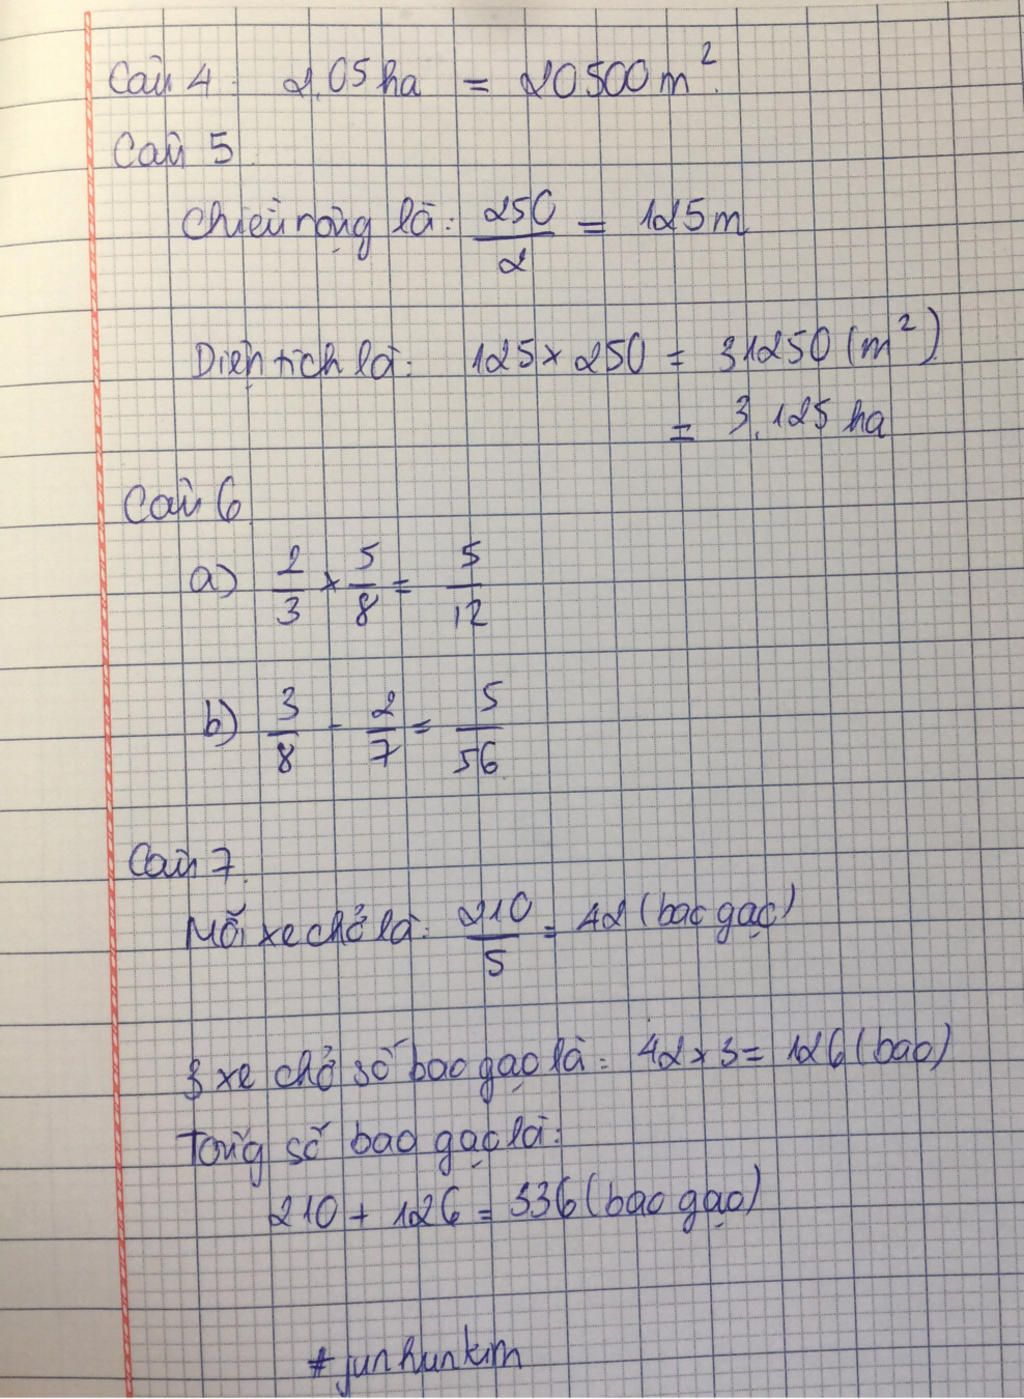 Câu 4: 2,05 ha = 20500 m²
Câu 5.
Chiều rộng là: 250/2 = 125 m
Diện tích là: 125 × 250 = 31250 (m²)
= 3,125 ha
Câu 6
a) 2/3 × 5/8 = 5/12
b) 3/8 - 2/7 = 5/56
Câu 7.
Mỗi xe chở là: 210/5 = 42 (bao gạo)
3 xe chở số bao gạo là: 42 × 3 = 126 (bao)
Tổng số bao gạo là:
210 + 126 = 336 (bao gạo)
#junhunkim